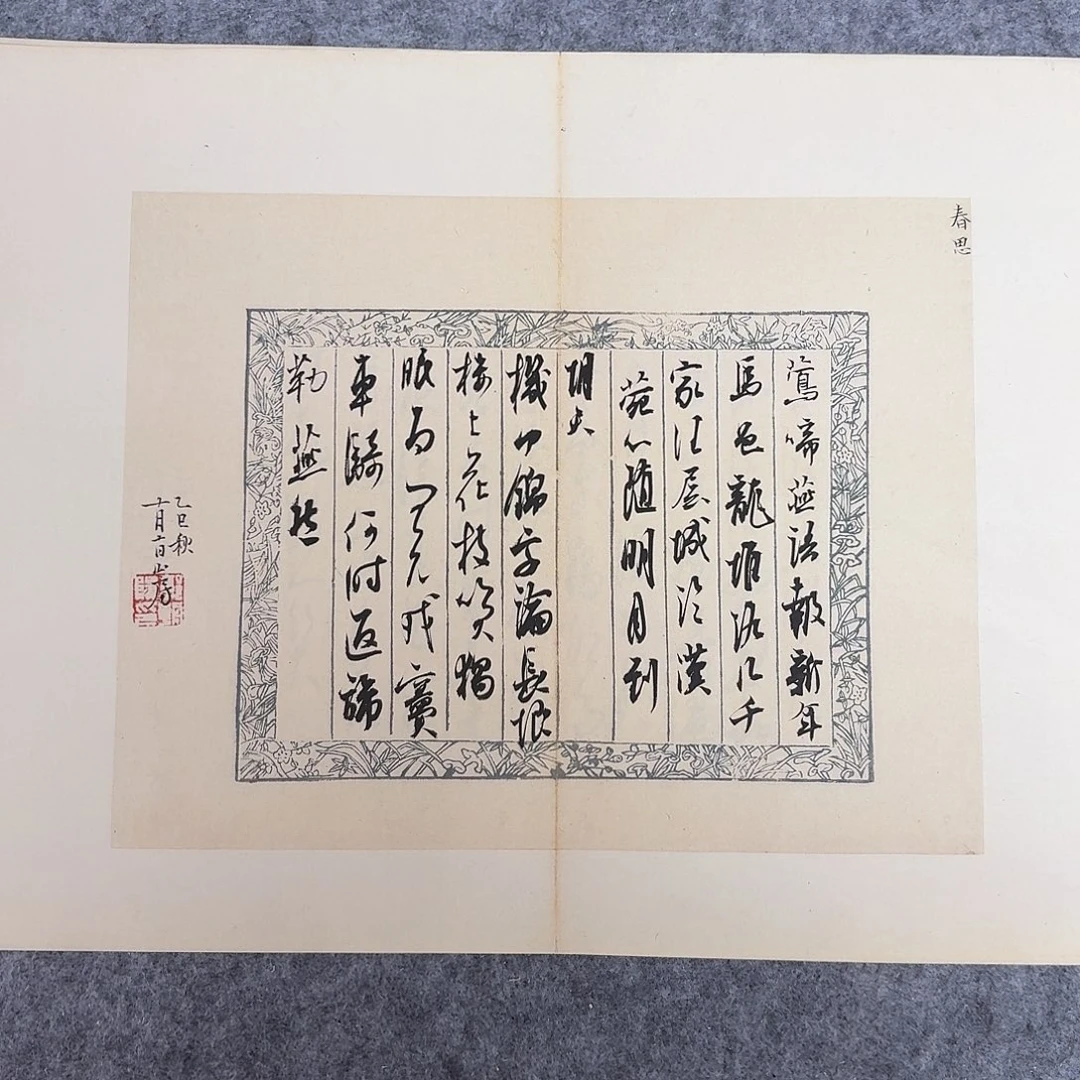 春思
鶯啼燕語報新年
馬邑龍堆路幾千
家住层城臨漢
苑心隨明月到
胡天
機中錦字論長恨
楼上花枝笑獨
眠為問元戎竇
車騎何时返旆
勒燕然
乙巳秋
十月